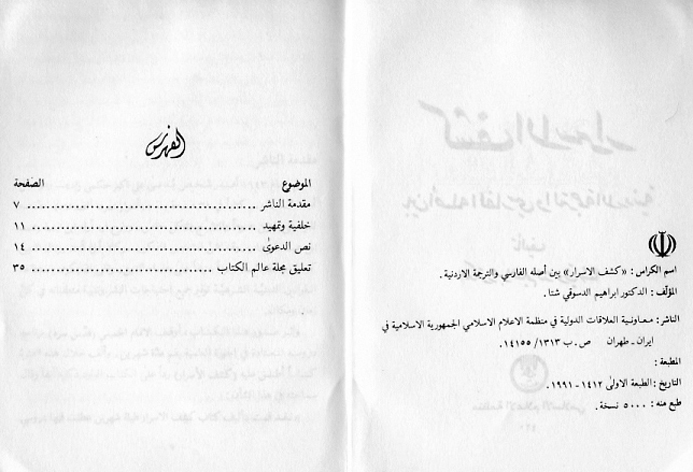 اسم الكراس : «كشف الاسرار» بين أصله الفارسي والترجمة الاردنية .
المؤلف : الدكتور ابراهيم الدسوقي شتا .
الناشر : معاونية العلاقات الدولية في منظمة الاعلام الاسلامي الجمهورية الاسلامية في
ايران ـ طهران ص . ب ١٣١٣/ ١٤١٥٥.
المطبعة :
التاريخ : الطبعة الاولى ١٤١٢-١٩٩١.
طبع منه : ٥٠٠٠ نسخة .
الفهرس
الموضوع الصفحة
مقدمة الناشر ................ ٧
خلفية وتمهيد ................ ١١
نص الدعوى ................ ١٤
تعليق مجلة عالم الكتاب ................ ٣٥